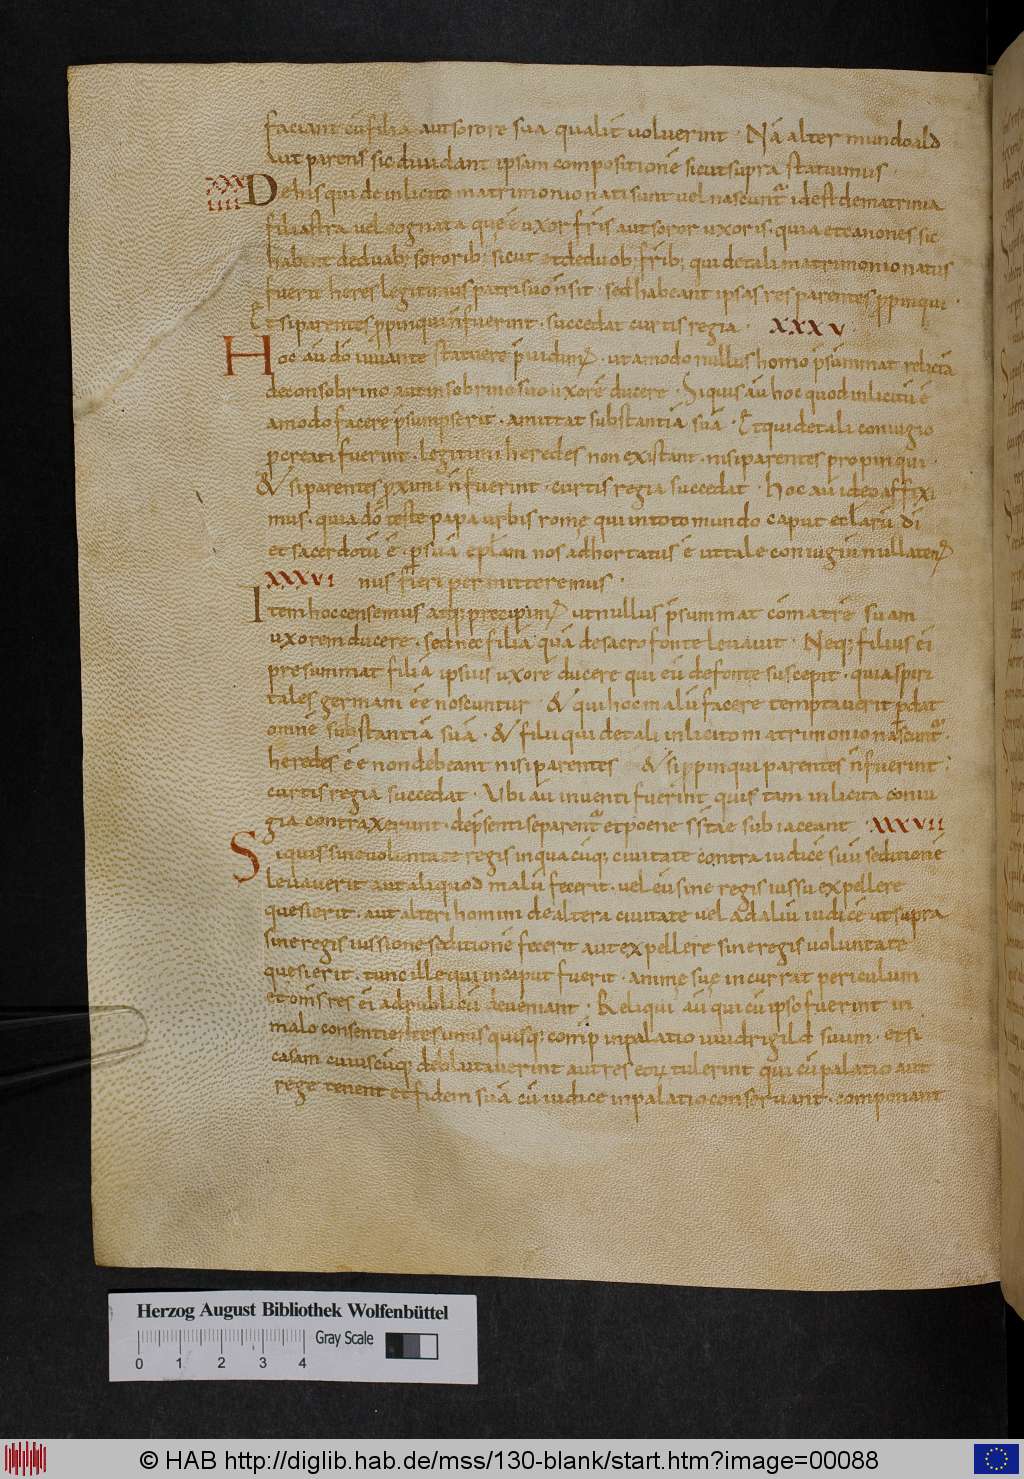 faciant cū filia aut sorore sua qualit̄ uoluerint · Nā alter mundoald
aut parens sic diuidant ipsam compositionē sicut supra statuimus ·
XXXIIII De his qui de inlicito matrimonio nati sunt uel nascunt̄ idest de matrinia
filiastra uel cognata que ē uxor fr̄is aut soror uxoris · quia et canones sic
habent de duab; sororib; sicut et de duob; fr̄ib; qui de tali matrimonio natus
fuerit heres legitimus patri suo n̄ sit · sed habeant ipsas res parentes ꝓpinqui ·
Et si parentes ꝓpinqui n̄ fuerint · succedat curtis regia · XXXV
Hoc aū dō iuuante statuere p̄uidim; · ut amodo nullus homo p̄summat relictā
de consobrino aut insobrino suo uxorē ducere · Siquis aū hoc quod inlicitū ē
amodo facere p̄sumpserit · amittat substantiā suā · Et qui de tali coniugio
ꝓcreati fuerint · legitimi heredes non existant · nisi parentes propinqui ·
& si parentes ꝓximi n̄ fuerint · curtis regia succedat · hoc aū ideo affixi
mus · quia dō teste papa urbis romę qui in toto mundo caput ecclarū di
et sacerdotū ē · ꝑ suā eplam nos adhortatus ē ut tale coniugiū nullaten;
XXXVI nus fieri permitteremus ·
Item hoc censemus atq; precipim; ut nullus p̄summat comatrē suam
uxorem ducere · sed nec filiā quā de sacro fonte leuauit · Neq; filius ei
presummat filiā ipsius uxorē ducere qui eū de fonte suscepit · quia spiri
tales germani eē noscuntur · & qui hoc malū facere temptauerit ꝑdat
omnē substantiā suā · & filii qui de tali inlicito matrimonio nascunt̄ ·
heredes eē non debeant nisi parentes & si ꝓpinqui parentes n̄ fuerint ·
curtis regia succedat · Ubi aū inuenti fuerint quis tam inlicita coniu
gia contraxerunt · de p̄senti separent̄ et poene s̄s̄tae subiaceant · XXXVII
Siquis sine uoluntate regis in qua cūq; ciuitate contra iudicē suū seditionē
leuauerit aut aliquod malū fecerit · uel eū sine regis iussu expellere
quesierit · aut alteri homini de altera ciuitate uel ad aliū iudicē ut supra
sine regis iussione seditionē fecerit aut expellere sine regis uoluntate
quesierit · tunc ille qui in caput fuerit · anime suę incurrat periculum
et om̄s res ei ad publicū deueniant · Reliqui aū qui cū ipso fuerint in
malo consentientes unusquisq; comp̄ in palatio uuidrigild suum · et si
casam cuiuscūq; deblutauerint aut res eoꝝ tulerint qui cū palatio aut
rege tenent et fidem suā cū iudice in palatio conseruant · componant
Herzog August Bibliothek Wolfenbüttel
Gray Scale
0 1 2 3 4
© HAB http://diglib.hab.de/mss/130-blank/start.htm?image=00088